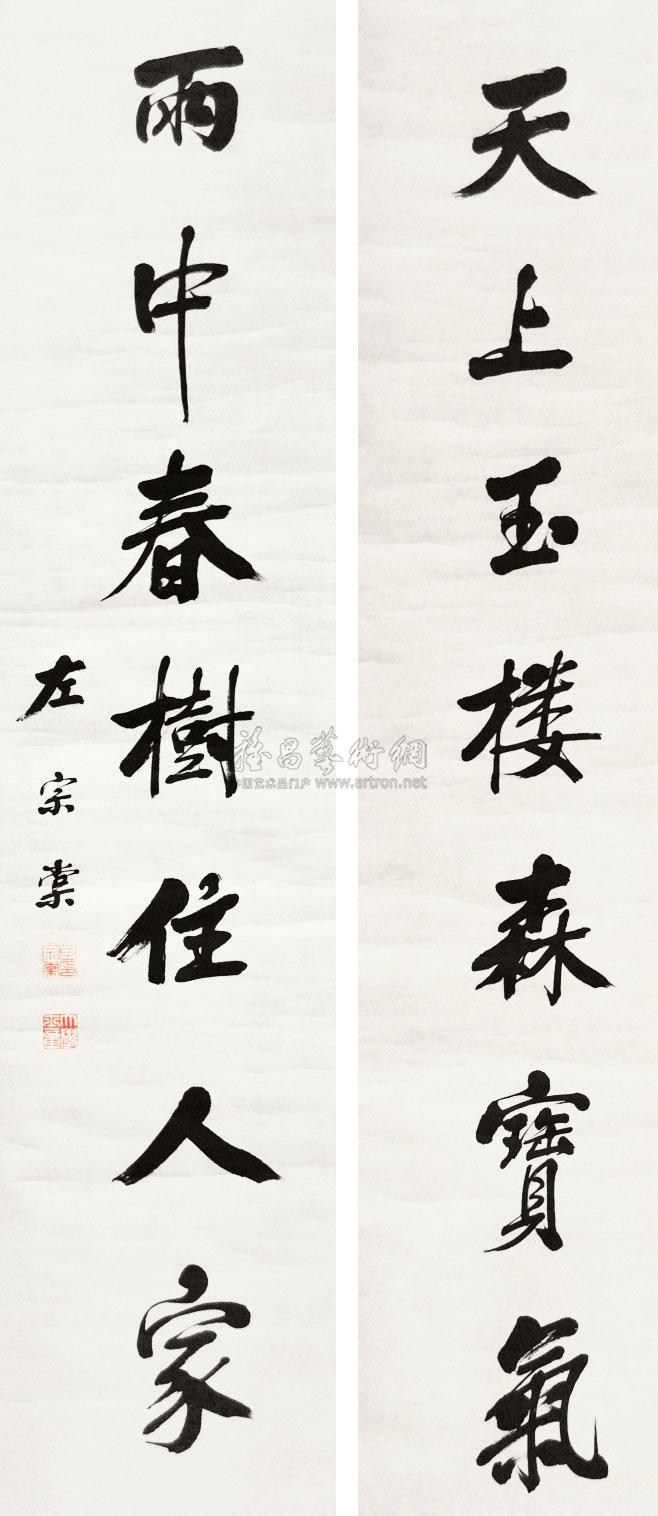 天上玉楼森寶氣
雨中春樹住人家
左宗棠
雅昌藝術網
中国艺术品门户 www.artron.net